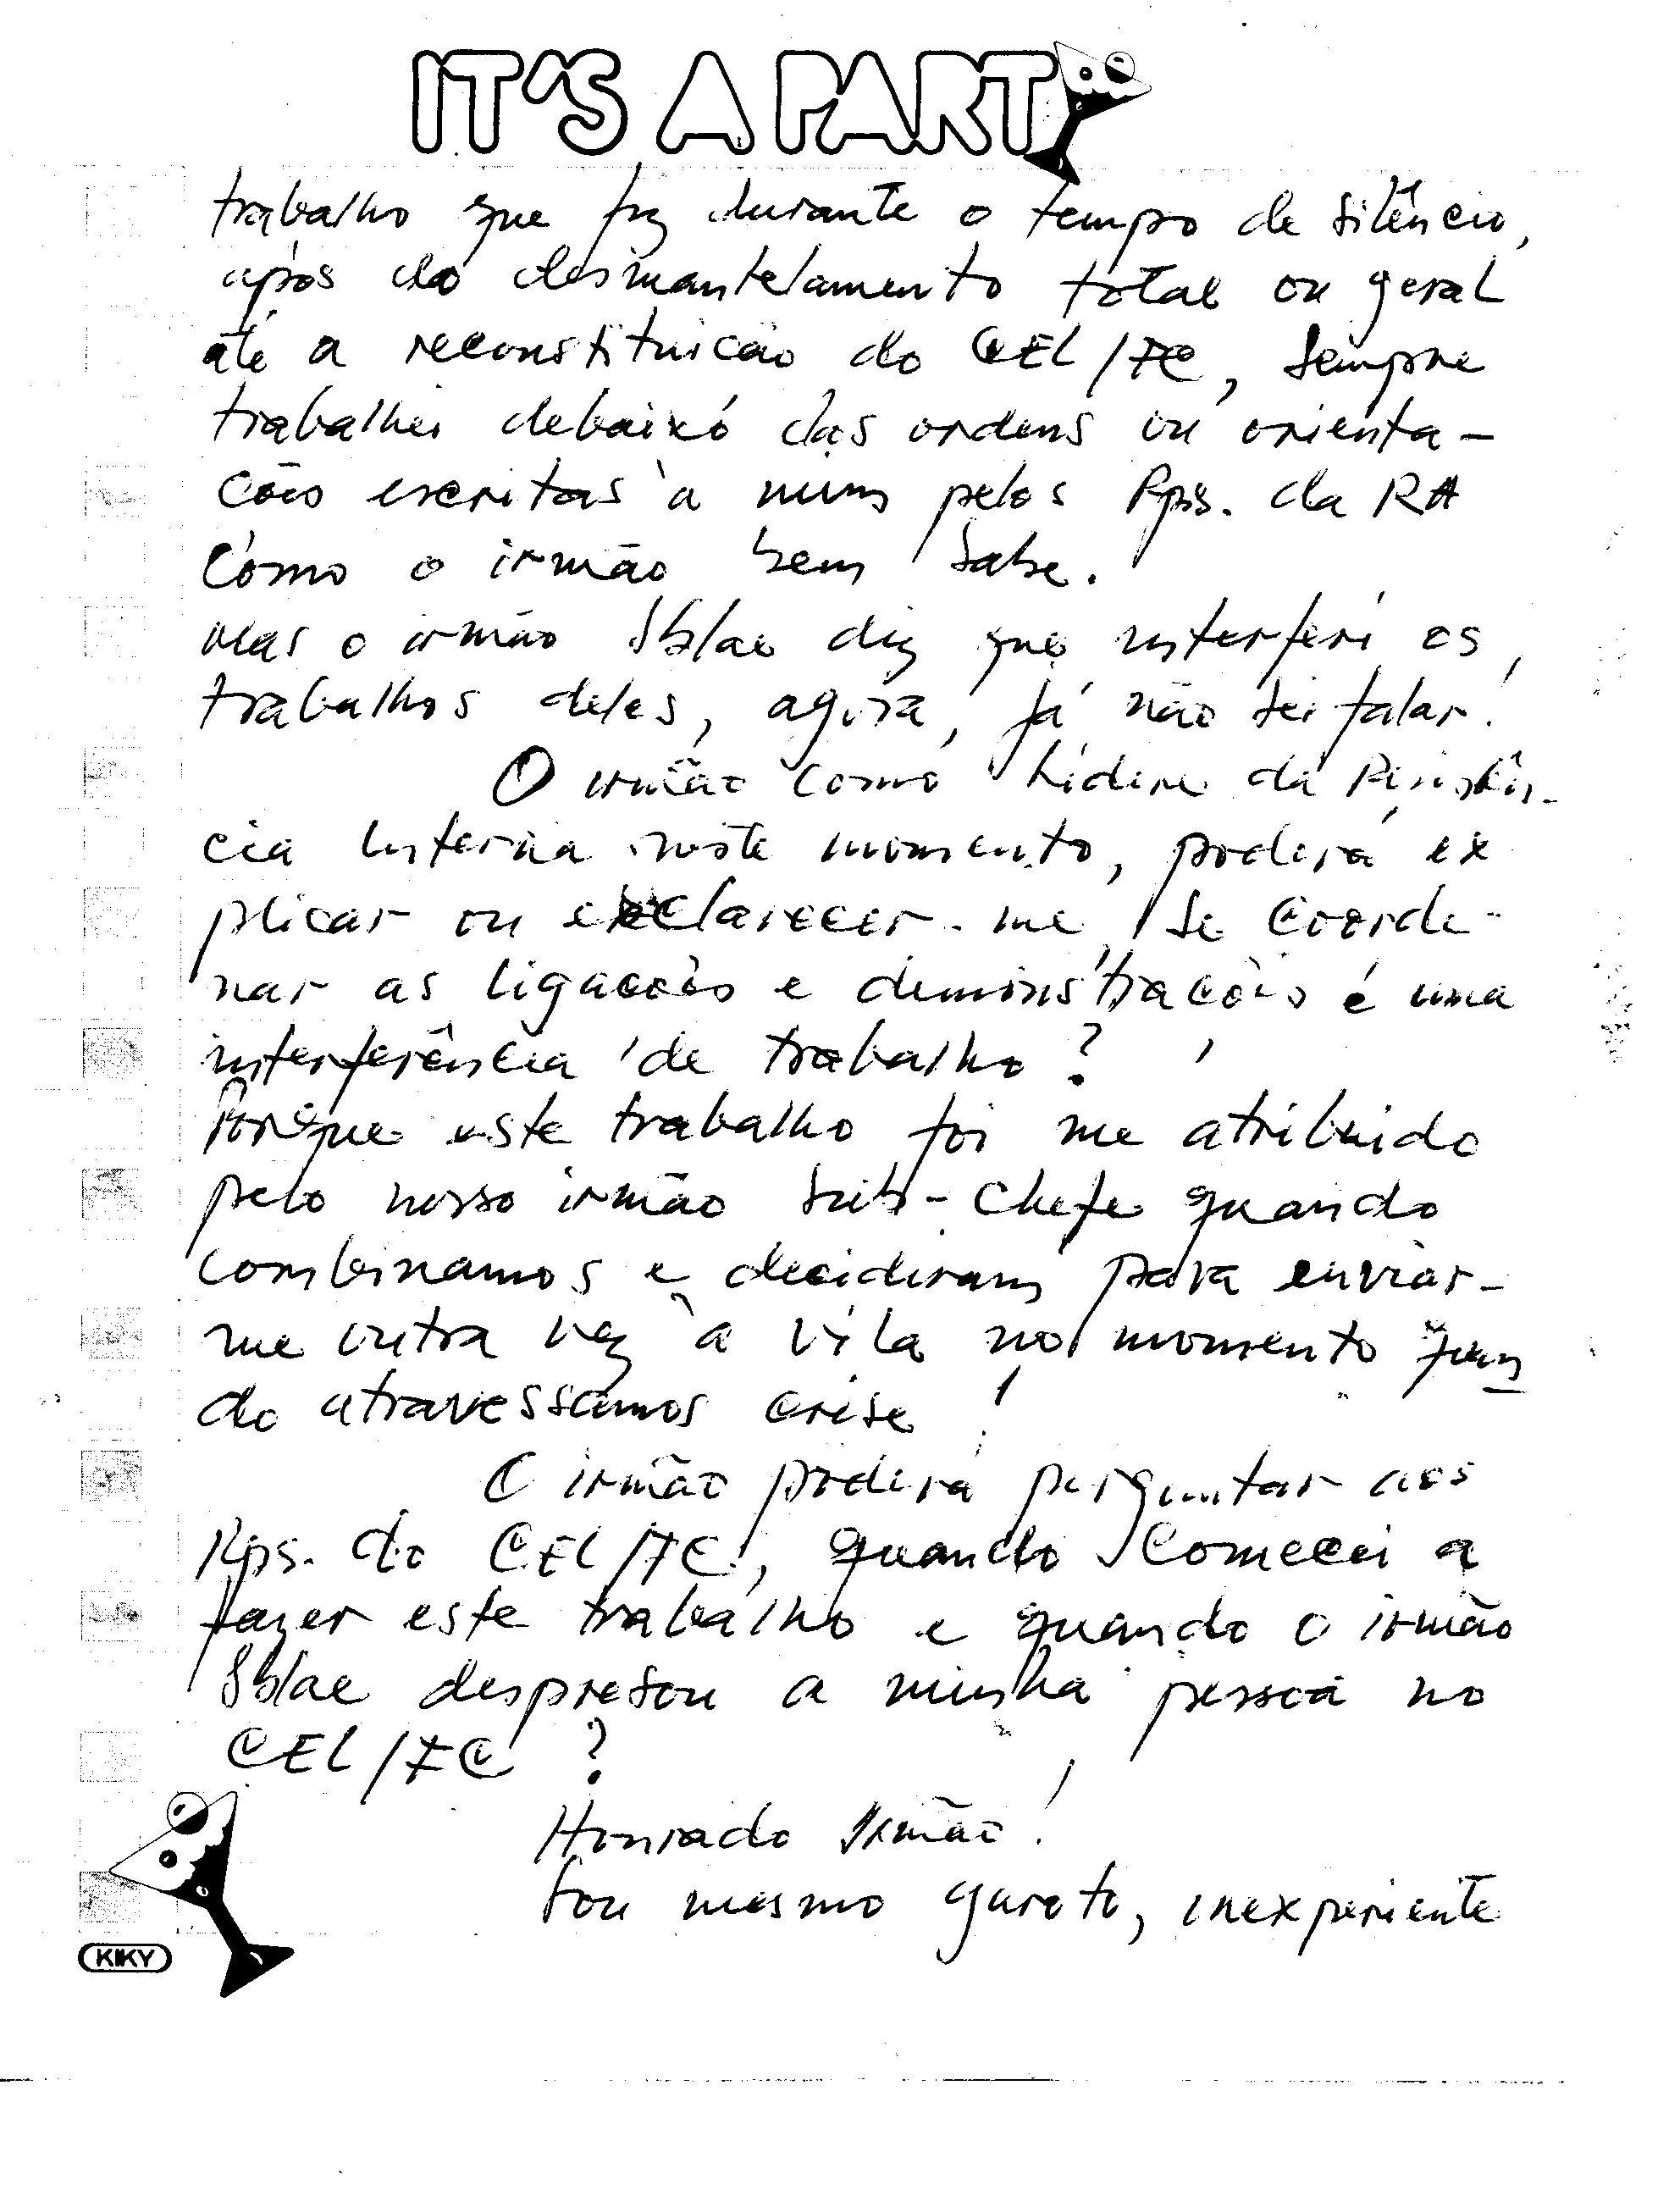 IT'S A PARTY
trabalho que fiz durante o tempo de silêncio,
após do desmantelamento total ou geral
até a reconstituicão do CEL/FC, sempre
trabalhei debaixo das ordens ou orienta-
cões escritas à mim pelos Rps. da RA
Como o irmão bem sabe.
Mas o irmão Sblae diz que interferi os
trabalhos deles, agora, já não sei falar.
O irmão como Lídere da Resistên-
cia Interna neste momento, poderá ex
plicar ou esclarecer-me, se Coorde-
nar as ligacões e deminstracões é uma
interferência de trabalho?
Porque este trabalho foi me atribuido
pelo nosso irmão Sub-Chefe quando
combinamos e decidiram para enviar-
me outra vez à Vila no momento quan
do atravessamos crise!
O irmão poderá perguntar aos
Rps. do CEL/FC, quando Comecei a
fazer este trabalho e quando o irmão
Sblae despresou a minha pessoa no
CEL/FC?
Honrado Irmão!
Sou mesmo garoto, inexperiente
KIKY